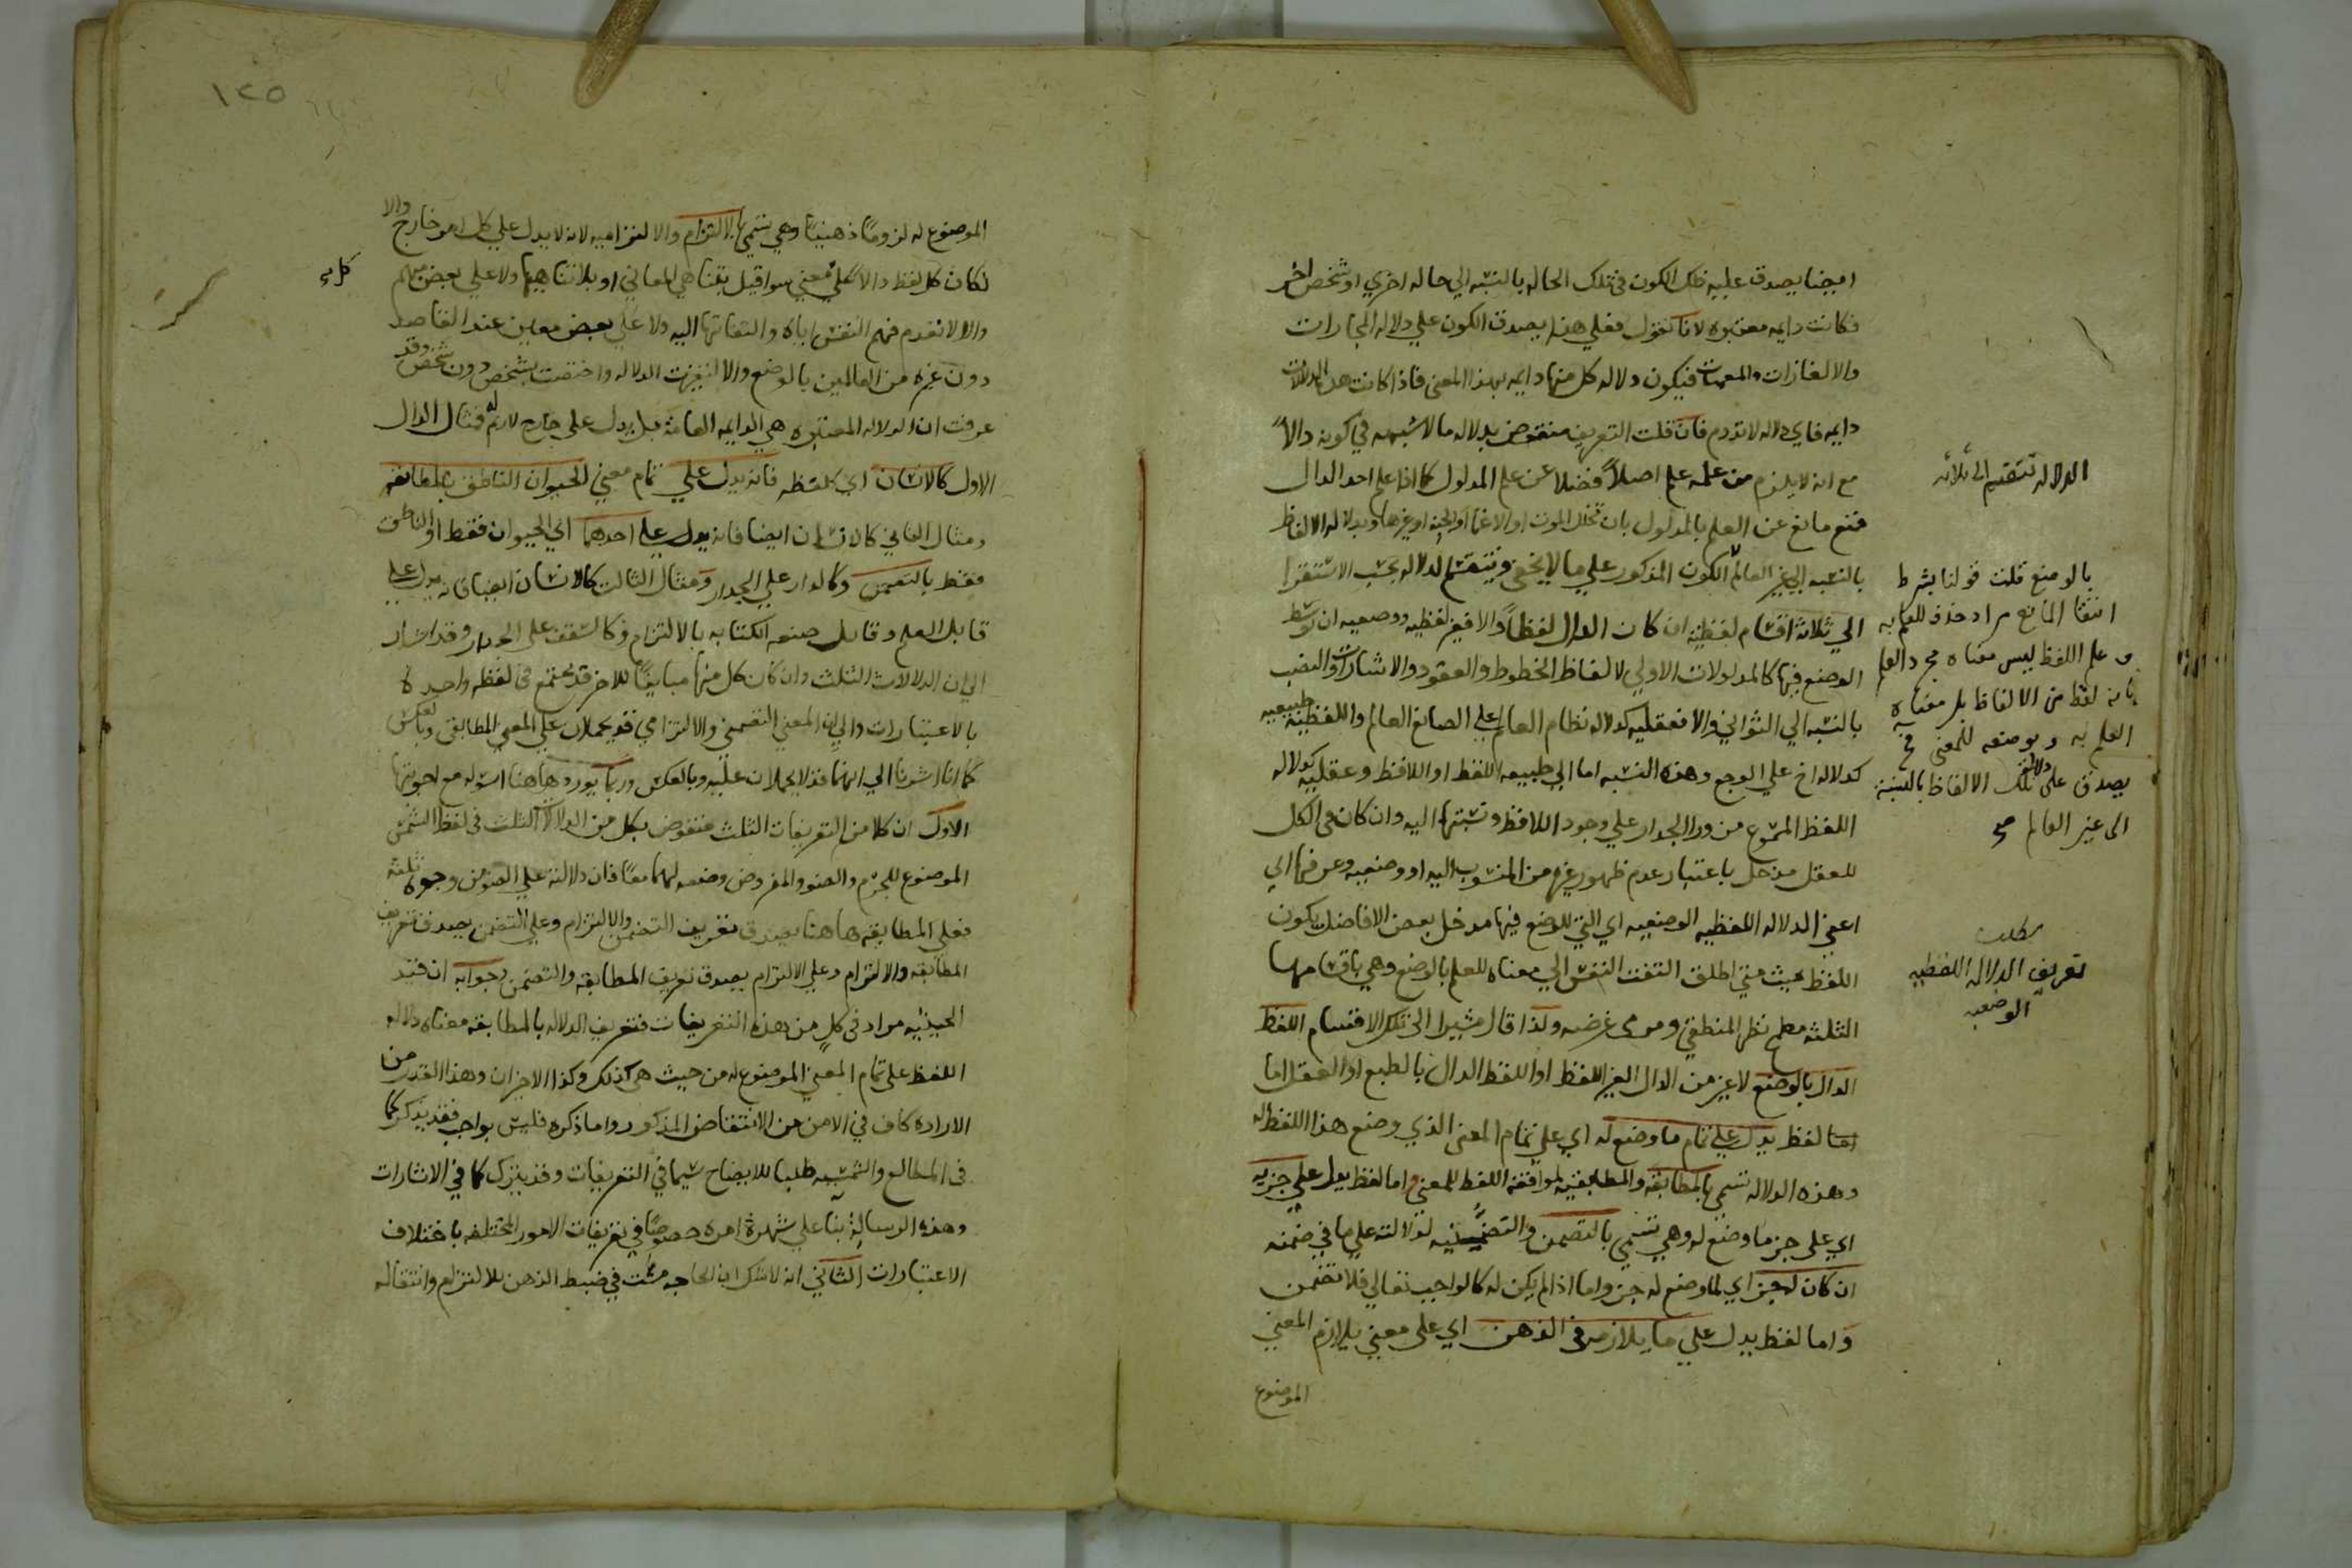 ايضا يصدق عليه ذلك الكون في تلك الحاله بالنسبه الي حاله اخري او شخص اخر
فكانت دايمه معتبره لانا نقول فعلي هذا يصدق الكون علي دلاله المجازات
والالغازات والمعميات فيكون دلاله كل منها دايمه بهذا المعني فاذا كانت هذه الدلالات
دايمه فاي دلاله لا تدوم فان قلت التعريف منقوض بدلاله ما لا شبهه في كونه دالاً
مع انه لا يلزم من علمه علم اصلاً فضلا عن علم المدلول كما اذا علم احد الدال
فمنع مانع عن العلم بالمدلول بان تخلل الموت او الاغما او الجنه او غيرها وبدلاله الالفاظ
بالنسبه الي غير العالم الكون المذكور علي ما لا يخفي وتنقسم الدلاله بحسب الاستقرا
الي ثلاثة اقسام لفظية ان كان الدال لفظاً والا فغير لفظيه ووضعيه ان توسط
الوضع فيها كالمدلولات الاولي لالفاظ الخطوط والعقود والاشارات والنصب
بالنسبه الي الثواني والا فعقليه كدلاله نظام العالم علي الصانع العالم واللفظية طبيعيه
كدلاله اخ علي الوجع وهذه النسبه اما الي طبيعه اللفظ او اللافظ وعقليه كدلاله
اللفظ المسموع من ورا الجدار علي وجود اللافظ ونسبتها اليه وان كان في الكل
للعقل مدخل باعتبار عدم ظهور غيره من المنسوب اليه او وضعيه وعرفها اي
اعني الدلاله اللفظيه الوضعيه اي التي للوضع فيها مدخل بعض الافاضل بكون
اللفظ بحيث متي اطلق التفت النفس الي معناه للعلم بالوضع وهي باقسامها
الثلثة مطمح نظر المنطقي ومرمي غرضه ولذا قال مشيرا الي تلك الاقسام اللفظ
الدال بالوضع لا غير من الدال الغير اللفظ او اللفظ الدال بالطبع او العقل اما
لفظ يدل علي تمام ما وضع له اي علي تمام المعني الذي وضع هذا اللفظ له
وهذه الدلاله تسمي بالمطابقة والمطابقيه لموافقة اللفظ للمعني واما لفظ يدل علي جزيه
اي علي جز ما وضع له وهي تسمي بالتضمن والتضمنيه لدلالته علي ما في ضمنه
ان كان له جز اي لما وضع له جز واما اذا لم يكن له كالواجب تعالي فلا تضمن
واما لفظ يدل علي ما يلازمه في الذهن اي علي معني يلازم المعني
الموضوع
الدلاله تنقسم الي ثلاثه
بالوضع قلت قولنا بشرط
انتفا المانع مراد حذف للعلم به
و علم اللفظ ليس معناه مجرد العلم
بانه لفظ من الالفاظ بل معناه
العلم به وبوضعه للمعني فح
يصدق علي دلالة تلك الالفاظ بالنسبة
الي غير العالم صح
مطلب
تعريف الدلاله اللفظيه
الوضعيه
١٢٥
الموضوع له لزومًا ذهنيًا وهي تسمي بالالتزام والالتزاميه لانه لا يدل علي كل امر خارج والا
لكان كل لفظ دالا علي معني سوا قيل بتناهي المعاني او بلا تناهيها ولا علي بعض مبهم
والا لا نقدم فهم النفس اياه والتفاتها اليه ولا علي بعض معين عند القاصد
دون غيره من العالمين بالوضع والا لتغيرت الدلاله واختصت بشخص دون شخص وقد
عرفت ان الدلاله المعتبره هي الدايمه العامة بل يدل علي خارج لازم له فمثال الدال
الاول كالانسان اي كلفظه فانه يدل علي تمام معني الحيوان الناطق بالمطابقه
ومثال الثاني كالانسان ايضا فانه يدل علي احدهما اي الحيوان فقط او الناطق
فقط بالتضمن وكالدار علي الجدار ومثال الثالث كالانسان ايضا فانه يدل علي
قابل العلم وقابل صنعه الكتابه بالالتزام وكالسقف علي الجدار وقد اشار
الي ان الدلالات الثلث وان كان كل منها مباينًا للاخر قد يجتمع في لفظه واحدة
بالاعتبارات والي ان المعني التضمني والالتزامي قد يحملان علي المعني المطابقي وبالعكس
كما انا اشرنا الي انهما قد لا يحملان عليه وبالعكس وربما يورد ها هنا اسوله مع اجوبتها
الاول ان كلا من التعريفات الثلث منقوض بكل من الدلالات الثلث في لفظ الشمس
الموضوع للجرم والضو والمفروض وضعه لهما معًا فان دلالته علي الضو من وجوه ثلثة
فعلي المطابقه ها هنا يصدق تعريف التضمن والالتزام وعلي التضمن يصدق تعريف
المطابقه والالتزام وعلي الالتزام يصدق تعريف المطابقه والتضمن وجوابه ان قيد
الحيثيه مراد في كل من هذه التعريفات فتعريف الدلاله بالمطابقه معناه دلاله
اللفظ علي تمام المعني الموضوع له من حيث هي كذلك وكذا الاخران وهذا القدر من
الاراده كاف في الامن من الانتقاض المذكور واما ذكره فليس بواجب فقد يذكر كما
في المطالع والشمسيه طلبا للايضاح سيما في التعريفات وقد يترك كما في الاشارات
وهذه الرسالة بنا علي شهرة امره خصوصًا في تعريفات الامور المختلفه باختلاف
الاعتبارات الثاني انه لا شك ان الحاجه مست في ضبط الذهن للالتزام وانتقاله
كل صح